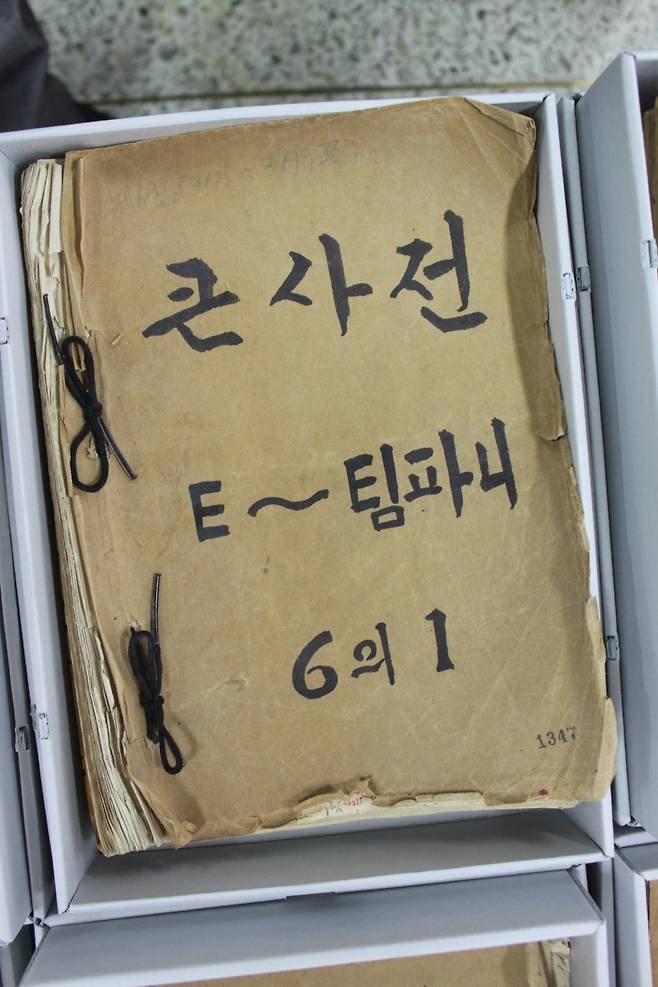 큰 사전
ㅌ ~ 팀파니
6의 1
1347